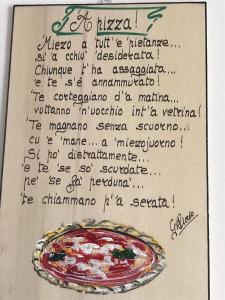 'A pizza!
Miezo a tutt'e pietanze...
si'a cchiu' desiderata!
Chiunque t'ha assaggiata...
e te s'è annammurato!
Te corteggiano d'a matina...
vuttanno 'n'uocchio int'a vetrina!
Te magnano senza scuorno...
cu 'e 'mane... a 'miezojuorno!
Si ho' distrattamente...
e te 'se so' scurdate...
pe' se fa' perdunà'...
te chiammano p''a serata!